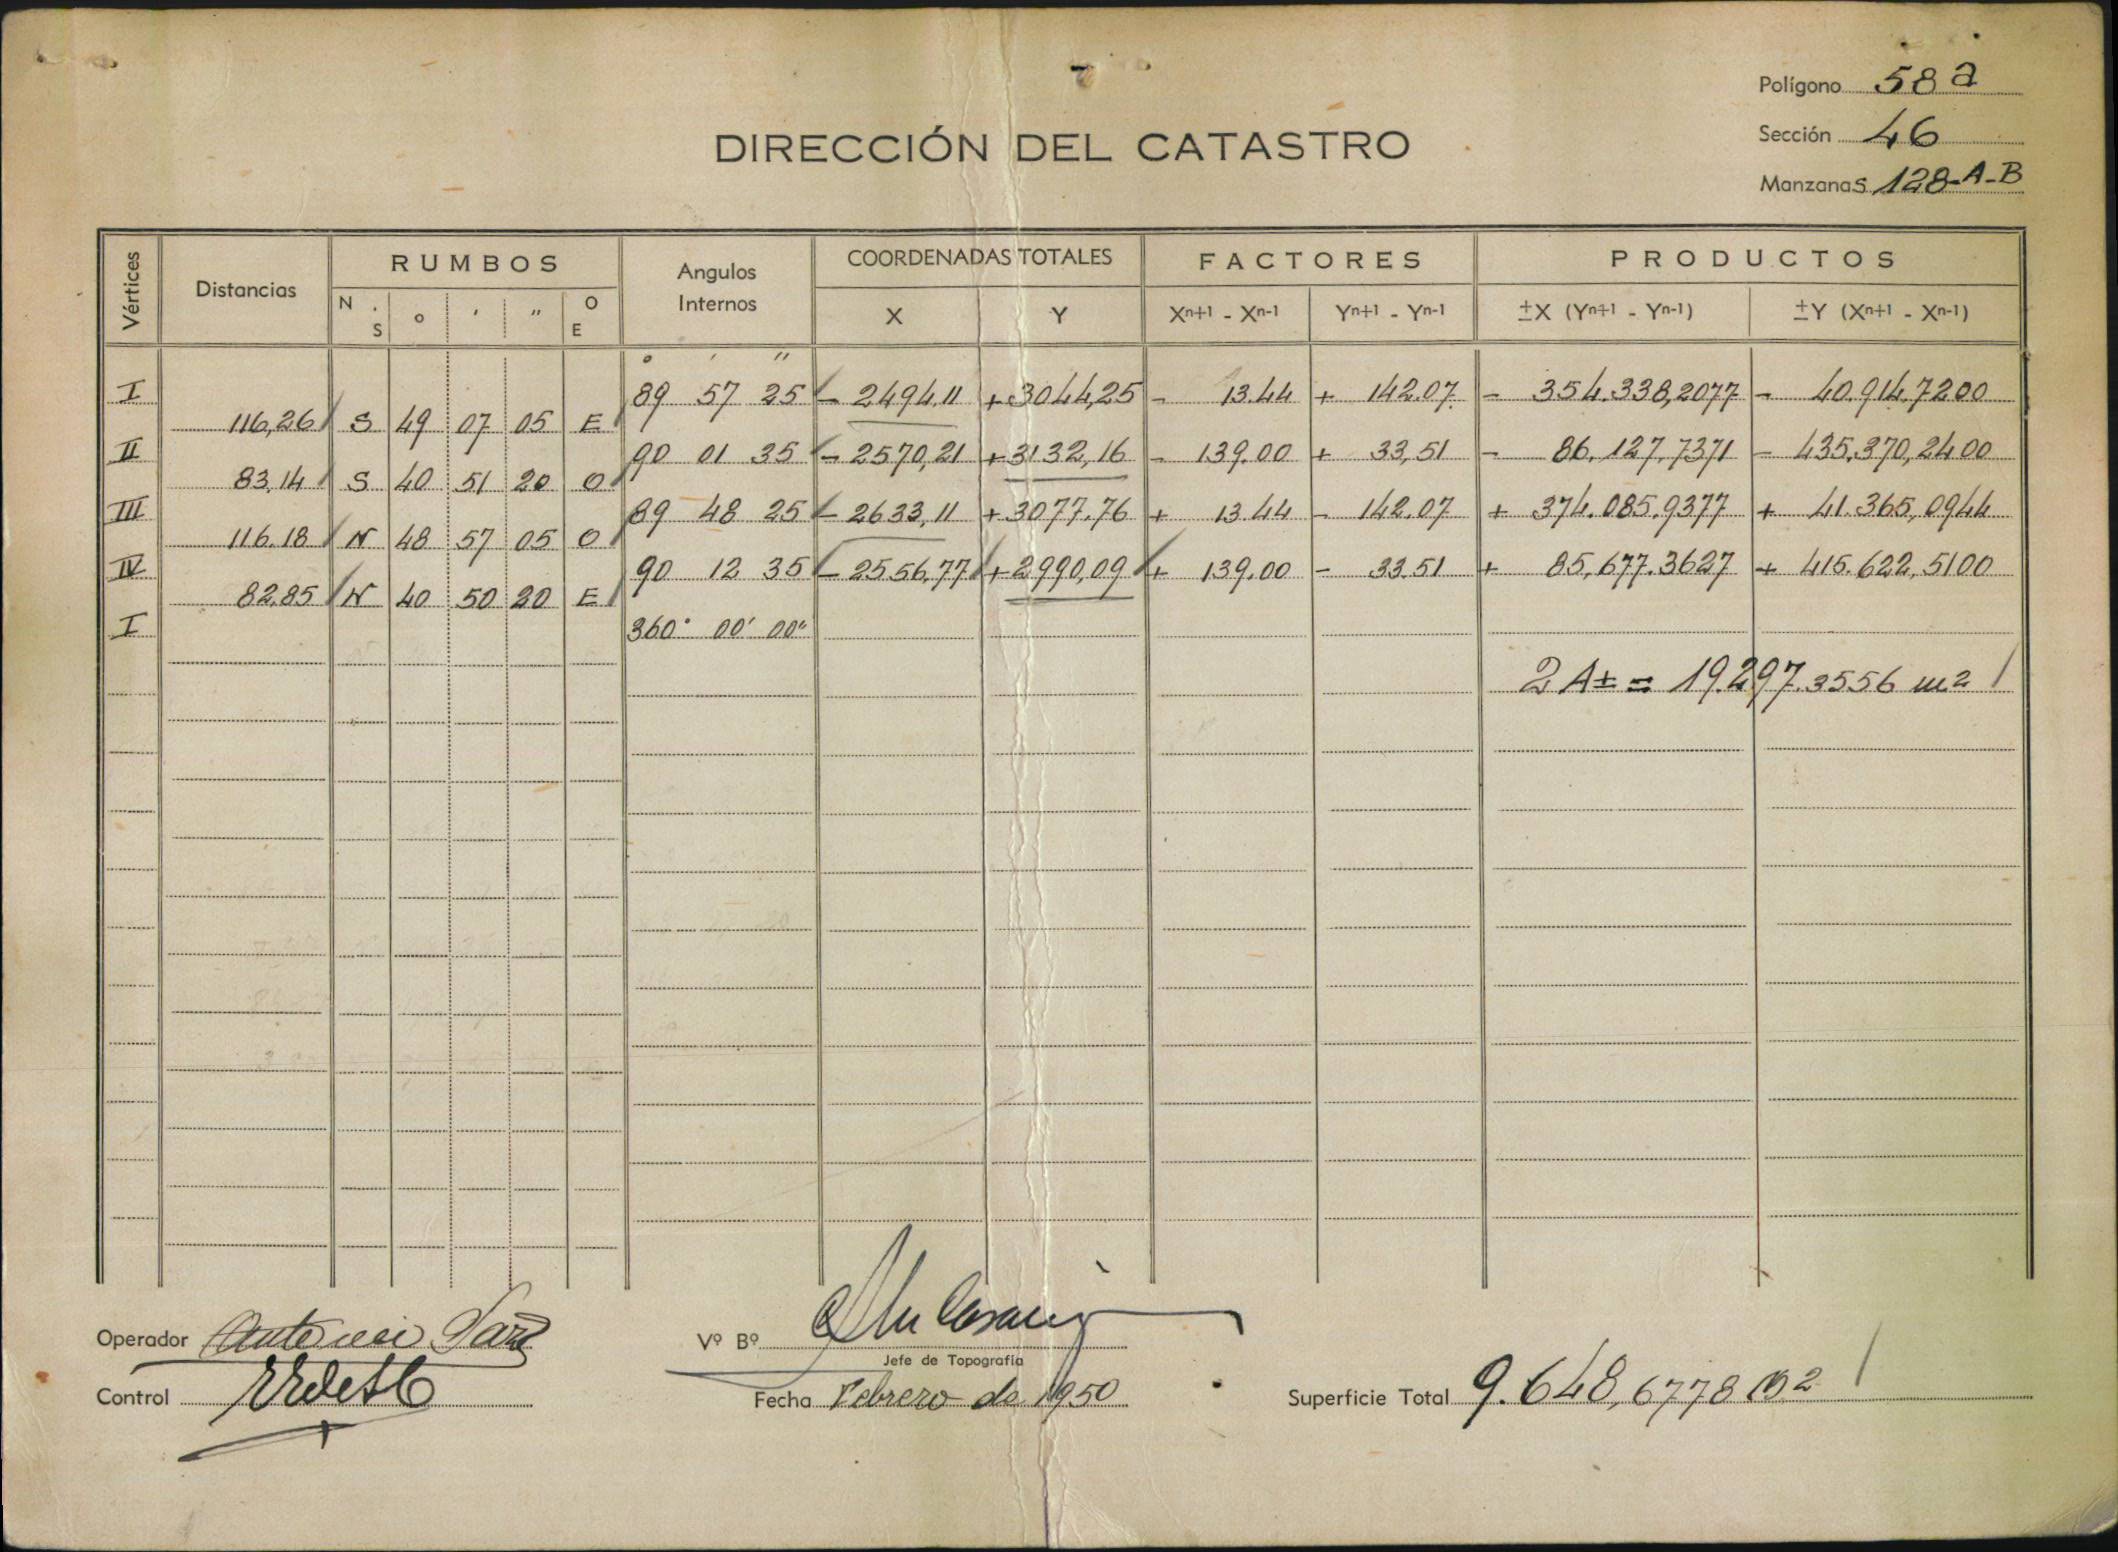 Polígono 58 a
Sección 46
Manzanas 128-A-B
DIRECCIÓN DEL CATASTRO
Vértices Distancias RUMBOS Angulos Internos COORDENADAS TOTALES FACTORES PRODUCTOS
N. S o ' " O E X Y Xn+1 - Xn-1 Yn+1 - Yn-1 ±X (Yn+1 - Yn-1) ±Y (Xn+1 - Xn-1)
° ' "
I 89 57 25 - 2494.11 +3044,25 - 13.44 + 142.07. - 354.338,2077 - 40.914.7200
116,26 S 49 07 05 E
II 90 01 35 - 2570,21 +3132,16 - 139.00 + 33,51 - 86.127.7371 - 435.370,2400
83.14 S 40 51 20 O
III 89 48 25 - 2633,11 +3077.76 + 13.44 - 142.07 + 374.085.9377 + 41.365,0944
116.18 N 48 57 05 O
IV 90 12 35 - 2556,77 +2990,09 + 139.00 - 33.51 + 85,677.3627 + 415.622,5100
82.85 N 40 50 20 E
I 360° 00' 00"
2 A± = 19.297.3556 m2
Operador
Control
Vº Bº
Jefe de Topografía
Fecha Febrero de 1950
Superficie Total 9.648,6778 m2